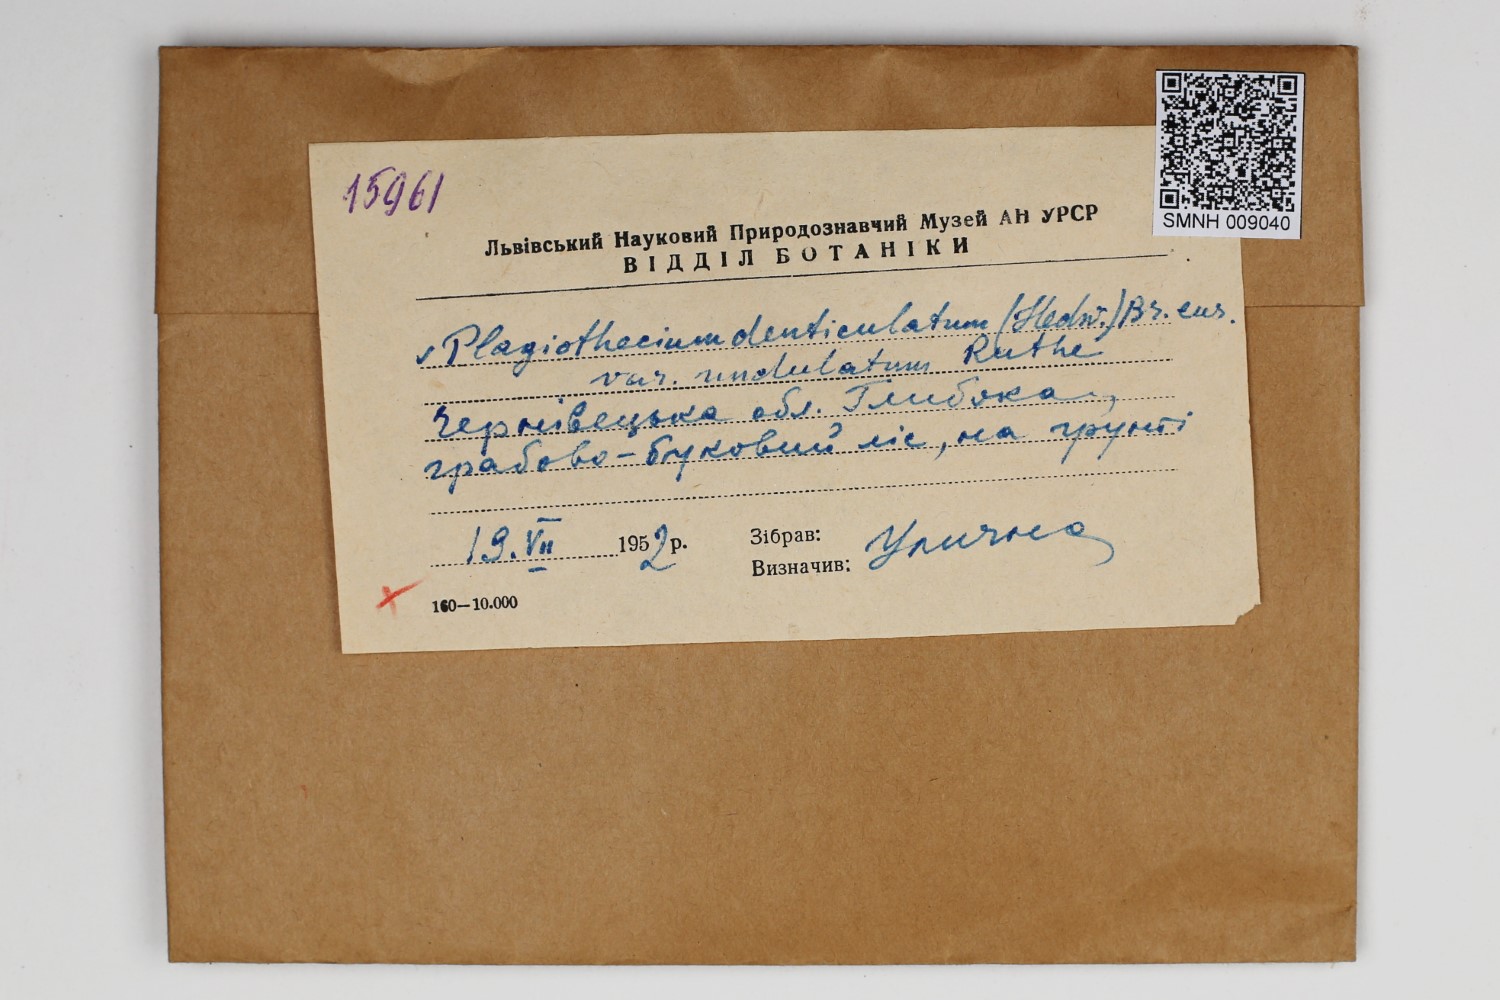 15961
SMNH 009040
Львівський Науковий Природознавчий Музей АН УРСР
ВІДДІЛ БОТАНІКИ
v Plagiothecium denticulatum (Hedw.) Br. eur.
var. undulatum Ruthe
Чернівецька обл. Глибока,
грабово-буковий ліс, на ґрунті
19.VII 1952 р.
Зібрав:
Визначив: Улична
160—10.000